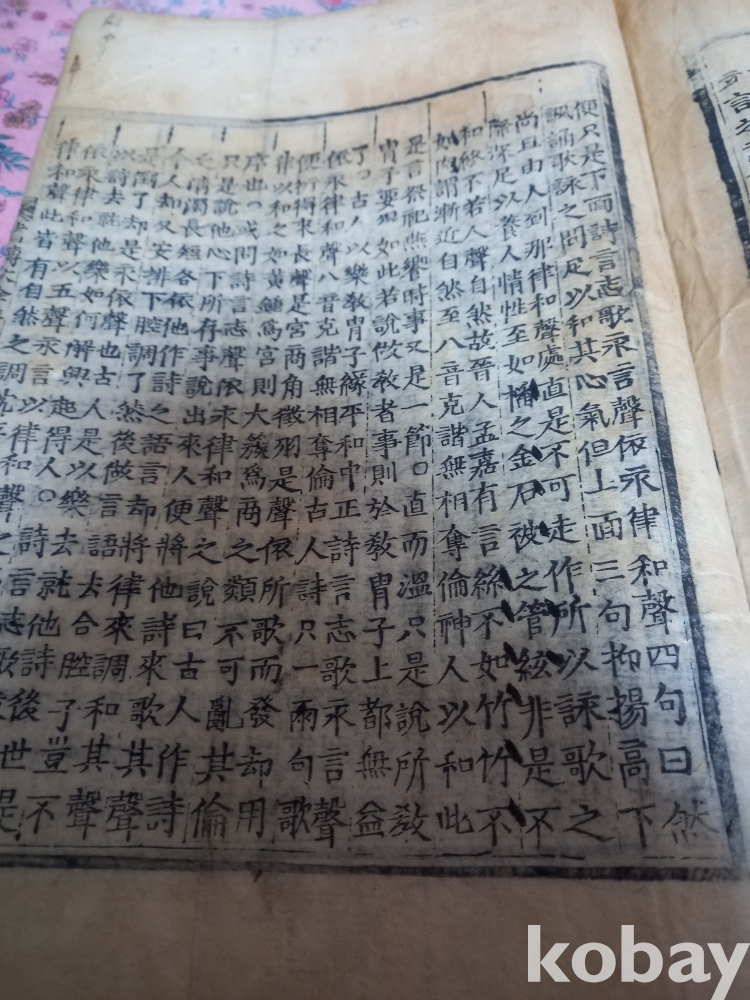 便只是下面詩言志歌永言聲依永律和聲四句曰然
諷誦歌詠之間足以和其心氣但上面三句抑揚高下
尚且由人到那律和聲處直是不可走作所以詠歌之
際深足以養人情性至如播之金石被之管絃非是不
和終不若人聲自然故晉人孟嘉有言絲不如竹竹不
如肉謂漸近自然至八音克諧無相奪倫神人以和此
是言祭祀燕饗時事又是一節○直而溫只是說所教
冑子要得如此若說做教者事則於教冑子上都無益
了○古人以樂教冑子緣平和中正詩言志歌永言聲
依永律和聲八音克諧無相奪倫古人詩只一兩句歌
便衍得來長聲是宮商角徵羽是聲依所歌而發却用
律以和之如黃鍾爲宮則大蔟爲商之類不可亂其倫
序也○或問詩言志聲依永律和聲之說曰古人作詩
只是說他心下所存事說出來人便將他詩來歌其聲
之淸濁長短各依他作詩之語言却將律來調和其聲
今人却又安排下腔調了然後做言語去合腔子豈不
是倒了却是永依聲也古人是以樂去就他詩後世是
以詩去就他樂如何解興起得人○詩言志歌
依永律和聲以五聲永言以律和聲之
律和聲此皆有自然之調
kobay